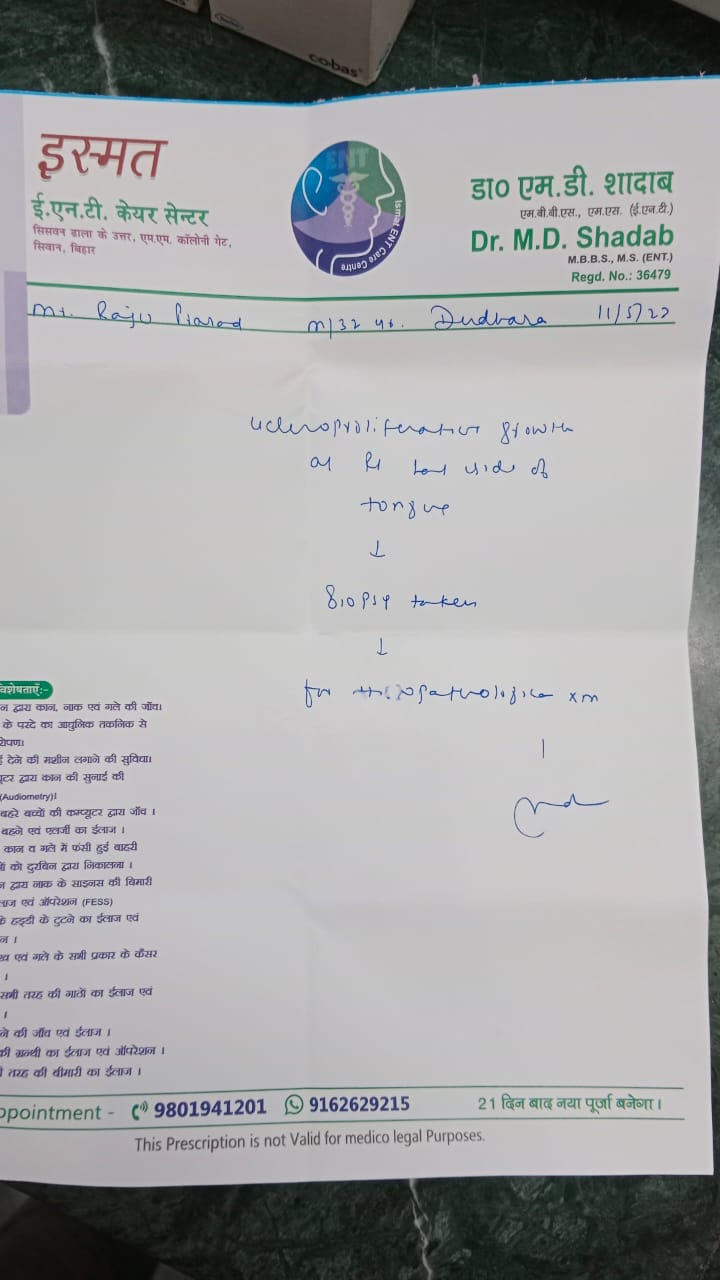 cobas
इस्मत
ई.एन.टी. केयर सेन्टर
सिसवन ढाला के उत्तर, एम.एम. कॉलोनी गेट,
सिवान, बिहार
ENT
Ismat ENT Care Centre
डा० एम.डी. शादाब
एम.बी.बी.एस., एम.एस. (ई.एन.टी.)
Dr. M.D. Shadab
M.B.B.S., M.S. (ENT.)
Regd. No.: 36479
Mr. Raju Prasad m/32 Dudhara 11/5/22
ulceroproliferative growth
at Rt side of
tongue
↓
Biopsy taken
↓
for
विशेषताएँ:-
न द्वारा कान, नाक एवं गले की जाँच।
के परदे का आधुनिक तकनिक से
रोपण।
ई देने की मशीन लगाने की सुविधा।
यूटर द्वारा कान की सुनाई की
(Audiometry)।
बहरे बच्चों की कम्प्यूटर द्वारा जाँच ।
बहने एवं एलर्जी का ईलाज ।
कान व गले में फंसी हुई बाहरी
ों को दुरबिन द्वारा निकालना ।
न द्वारा नाक के साइनस की बिमारी
लाज एवं ऑपरेशन (FESS)
के हड्डी के टुटने का ईलाज एवं
न ।
ख एवं गले के सभी प्रकार के कैंसर
।
सभी तरह की गाठों का ईलाज एवं
।
ने की जाँच एवं ईलाज ।
की ग्रन्थी का ईलाज एवं ऑपरेशन ।
तरह की बीमारी का ईलाज ।
ppointment - 9801941201 9162629215 21 दिन बाद नया पूर्जा बनेगा।
This Prescription is not Valid for medico legal Purposes.